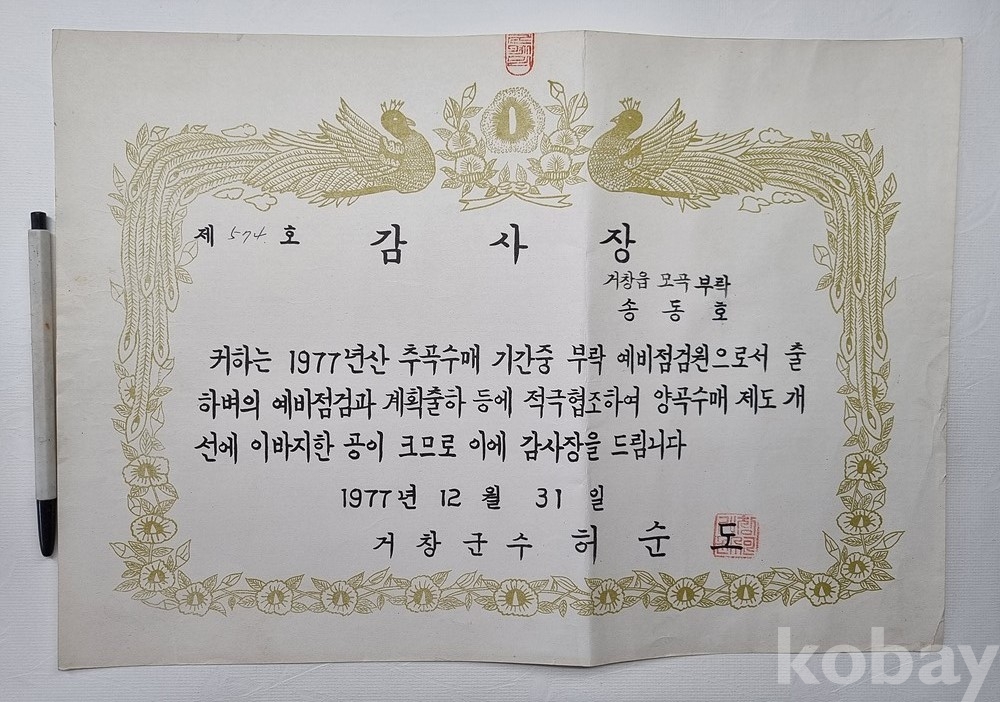 제 574. 호
감 사 장
거창읍 모곡 부락
송 동 호
귀하는 1977년산 추곡수매 기간중 부락 예비점검원으로서 출
하벼의 예비점검과 계획출하 등에 적극협조하여 양곡수매 제도 개
선에 이바지한 공이 크므로 이에 감사장을 드립니다
1977년 12 월 31 일
거 창 군 수 허 순 도
kobay